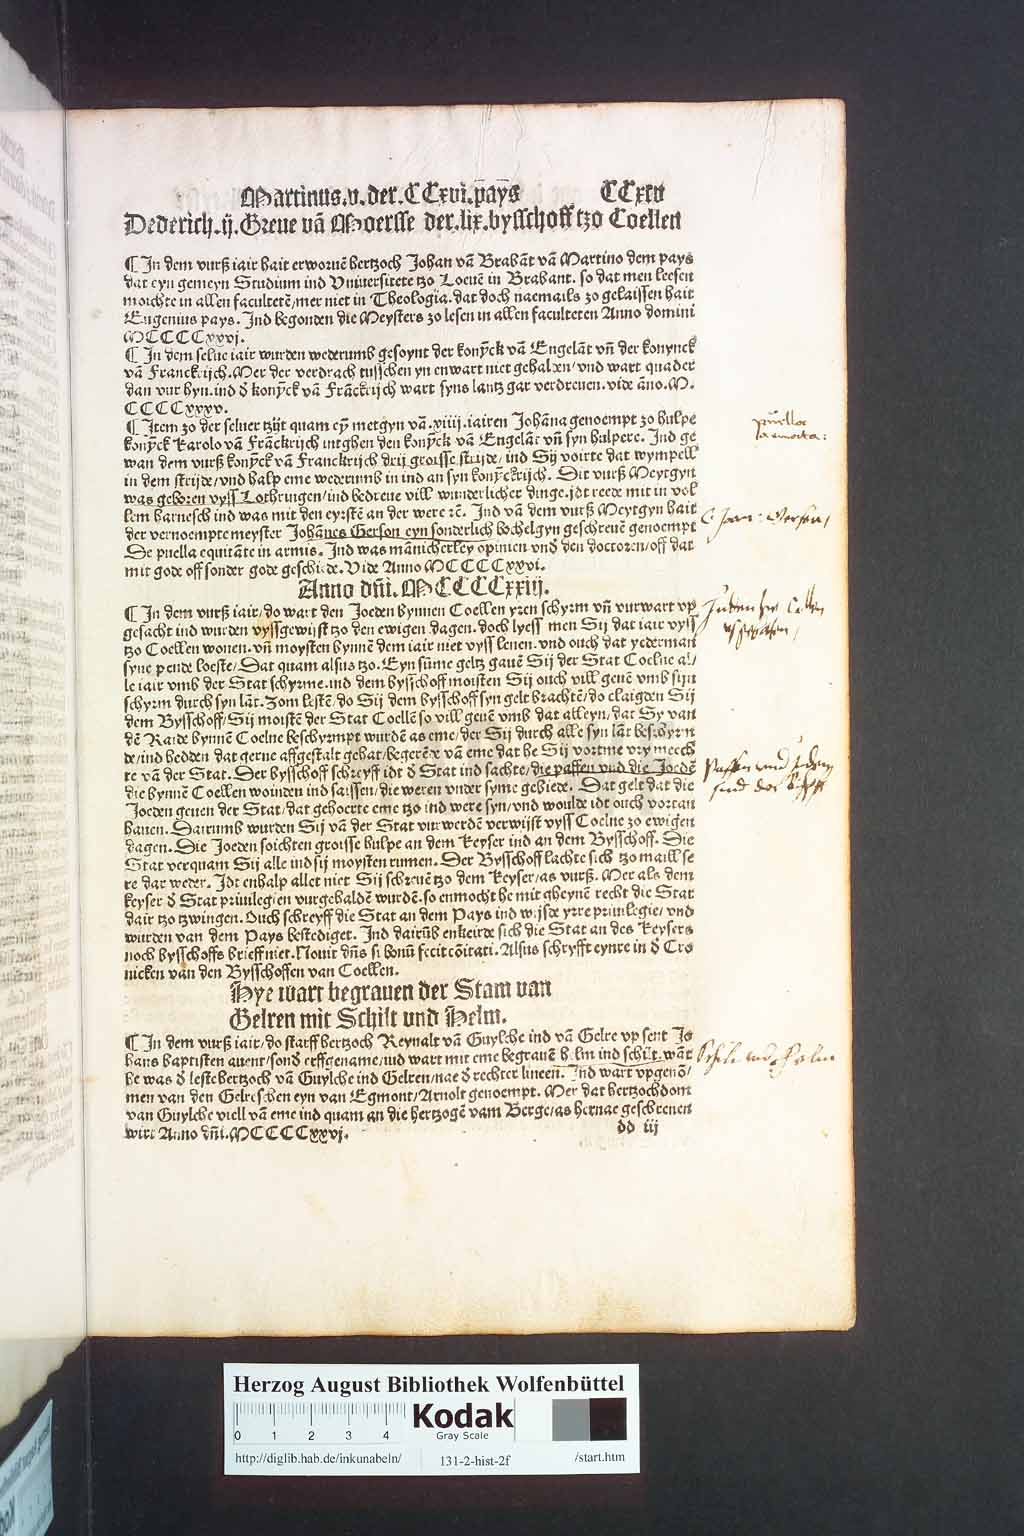 Martinus.v. der.CCxvi.pays CCxcv
Dederich.ij.Greue vā Moersse der.lix.bysschoff tzo Coellen
¶ In dem vurß iair hait erworuē hertzoch Johan vā Brabāt vā Martino dem pays
dat eyn gemeyn Studium ind Vniuersitete tzo Louē in Brabant. so dat men leesen
moichte in allen facultetē/mer niet in Theologia. dat doch naemails zo gelaissen hait
Eugenius pays. Ind begonden die Meysters zo lesen in allen faculteten Anno domini
MCCCCxxvj.
¶ In dem selue iair wurden wederumb gesoynt der konyck vā Engelāt vn̄ der konynck
vā Franckrijch. Mer der verdrach tusschen yn enwart niet gehalden/vnd wart quader
dan vur hyn. ind d̄ konyck vā Frāckrijch wart syns lantz gar verdreuen. vide āno. M.
CCCCxxxv.
¶ Item zo der seluer tzijt quam eȳ metgyn vā .xiiij. iairen Johāna genoempt zo hulpe
konyck Karolo vā Frāckrijch intghen den konyck vā Engelāt vn̄ syn hulpere. Ind ge
wan dem vurß konyck vā Franckrijch drij groisse strijde/ ind Sij voirte dat wympell
in dem strijde/vnd halp eme wederumb in ind an syn konyckrijch. Dit vurß Meytgyn
was geboren vyss Lothringen/ind bedreue vill wunderlicher dinge. idt reede mit in vol
lem harnesch ind was mit den eyrstē an der were rc̄. Ind vā dem vurß Meytgyn hait
der vernoempte meyster Johānes Gerson eyn sonderlich bochelgyn geschreuē genoempt
De puella equitāte in armis. Ind was mānicherley opinien vnd̄ den doctoren/off dat
mit gode off sonder gode geschiede. Vide Anno MCCCCxxvi.
Anno dn̄i. MCCCCxxiij.
¶ In dem vurß iair/do wart den Joeden bynnen Coellen yren schyrm vn̄ vurwart vp
gesacht ind wurden vyssgewijst tzo den ewigen dagen. doch lyess men Sij dat iair vyss
tzo Coellen wonen. vn̄ moysten bynnē dem iair niet vyss lenen. vnd ouch dat yederman
syne pende loeste/ Dat quam alsus tzo. Eyn sūme geltz gauē Sij der Stat Coelne al/
le iair vmb der Stat schyrme. ind dem bysschoff moisten Sij ouch vill geuē vmb sijn
schyrm durch syn lāt. Zom lestē/do Sij dem bysschoff syn gelt brachtē/do claigden Sij
dem Bysschoff/Sij moistē der Stat Coellē so vill geuē vmb dat alleyn/dat Sy van
dē Raide bynnē Coelne beschyrmpt wurdē as eme/der Sij durch alle syn lāt beschyrm
de/ind hedden dat gerne affgestalt gehat/begerēde vā eme dat he Sij vortme vry meech
te vā der Stat. Der bysschoff schreyff idt d̄ Stat ind sachte/die paffen vnd die Joedē
die bynnē Coellen woinden ind saissen/die weren vnder syme gebiede. Dat gelt dat die
Joeden geuen der Stat/dat gehoerte eme tzo ind were syn/vnd woulde idt ouch vortan
hauen. Dairumb wurden Sij vā der Stat vurwerdē verwijst vyss Coelne zo ewigen
dagen. Die Joeden soichten groisse hulpe an dem Keyser ind an dem Bysschoff. Die
Stat verquam Sij alle ind sij moysten rumen. Der Bysschoff lachte sich tzo maill se
re dar weder. Idt enhalp allet niet Sij schreuē tzo dem Keyser/as vurß. Mer als dem
keyser d̄ Stat priuilegien vurgehaldē wurdē. so enmocht he mit gheynē recht die Stat
dair tzo tzwingen. Ouch schreyff die Stat an dem Pays ind wijsde yrre priuilegie/ vnd
wurden van dem Pays bestediget. Ind dairūb enkeirde sich die Stat an des Keysers
noch bysschoffs brieff niet. Nouit dn̄s si bonū fecit cōitati. Alsus schryfft eynre in d̄ Cro
nicken van den Bysschoffen van Coellen.
Hye wart begrauen der Stam van
Gelren mit Schilt vnd Helm.
¶ In dem vurß iair/do starff hertzoch Reynalt vā Guylche ind vā Gelre vp sent Jo
hans baptisten auent/sond̄ erffgename/ind wart mit eme begrauē helm ind schilt. wāt
he was d̄ leste hertzoch vā Guylche ind Gelren/nae d̄ rechter lineen. Ind wart vpgenō/
men van den Gelreschen eyn van Egmont/Arnolt genoempt. Mer dat hertzochdom
van Guylche viell vā eme ind quam an die hertzogē vam Berge/as hernae geschreuen
wirt Anno dn̄i.MCCCCxxvj.
dd iij
puella
armata:
Joan: Gersen/
Juden zu Collen
Paffen und Juden
sind des Bischoff
Schilt und Helm
Herzog August Bibliothek Wolfenbüttel
0 1 2 3 4
Kodak
Gray Scale
http://diglib.hab.de/inkunabeln/ 131-2-hist-2f /start.htm